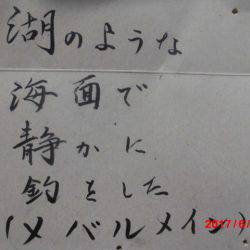 湖のような
海面で
静かに
釣をした
(メバルメイン)
2017/6/